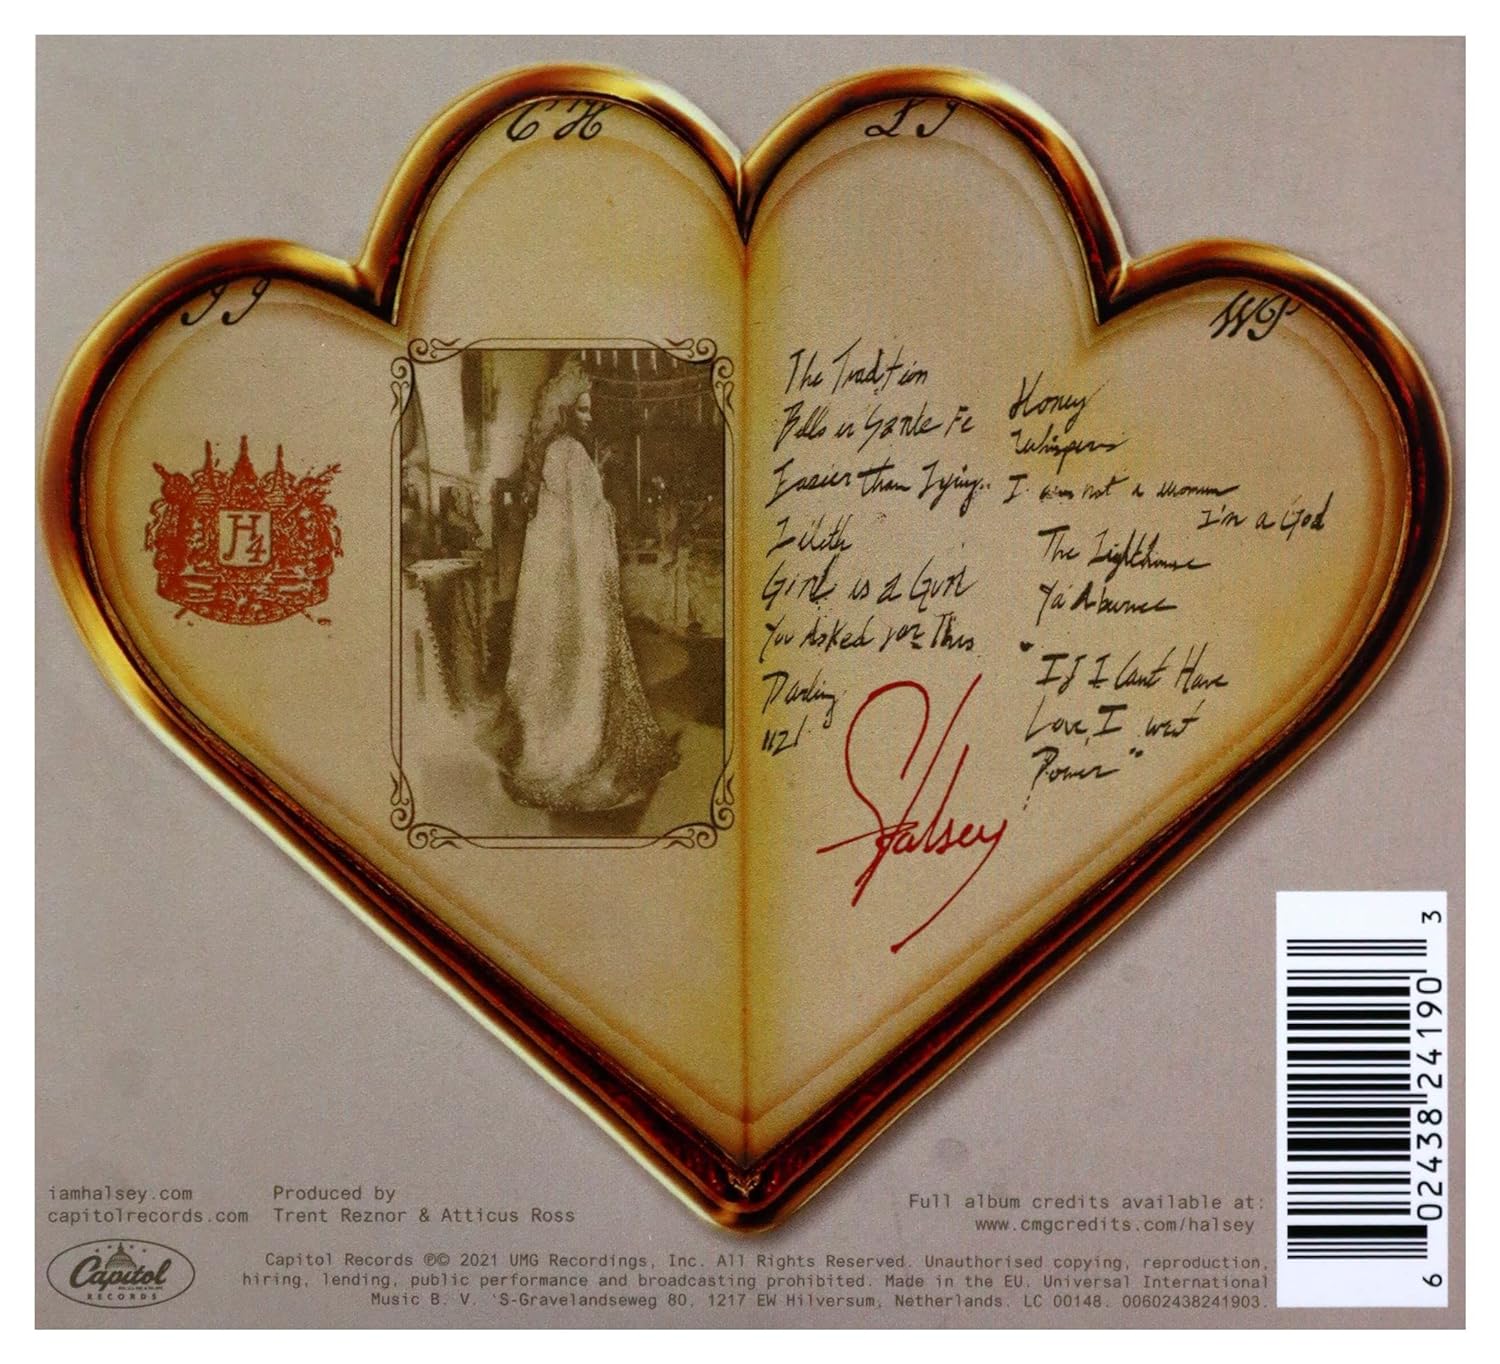 CH
LJ
JJ
WP
H4
The Tradition
Bells in Santa Fe
Easier than Lying..
Lilith
Girl is a Gun
You Asked For This
Darling
1121
Honey
Whispers
I am not a woman
I'm a God
The Lighthouse
Ya'Aburnee
"If I Can't Have
Love, I want
Power"
Halsey
6 02438 24190 3
iamhalsey.com
capitolrecords.com
Produced by
Trent Reznor & Atticus Ross
Full album credits available at:
www.cmgcredits.com/halsey
Capitol
RECORDS
Capitol Records ℗© 2021 UMG Recordings, Inc. All Rights Reserved. Unauthorised copying, reproduction,
hiring, lending, public performance and broadcasting prohibited. Made in the EU. Universal International
Music B. V. 'S-Gravelandseweg 80, 1217 EW Hilversum, Netherlands. LC 00148. 00602438241903.